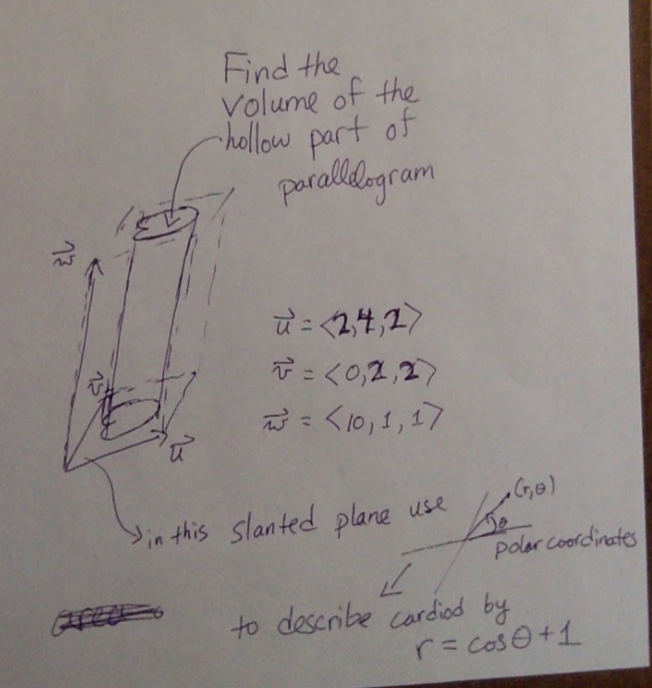 Find the
volume of the
hollow part of
parallelogram
w
v
u
u = <2,4,2>
v = <0,2,2>
w = <10,1,1>
in this slanted plane use
(r,θ)
θ
polar coordinates
to describe cardiod by
r = cosθ+1